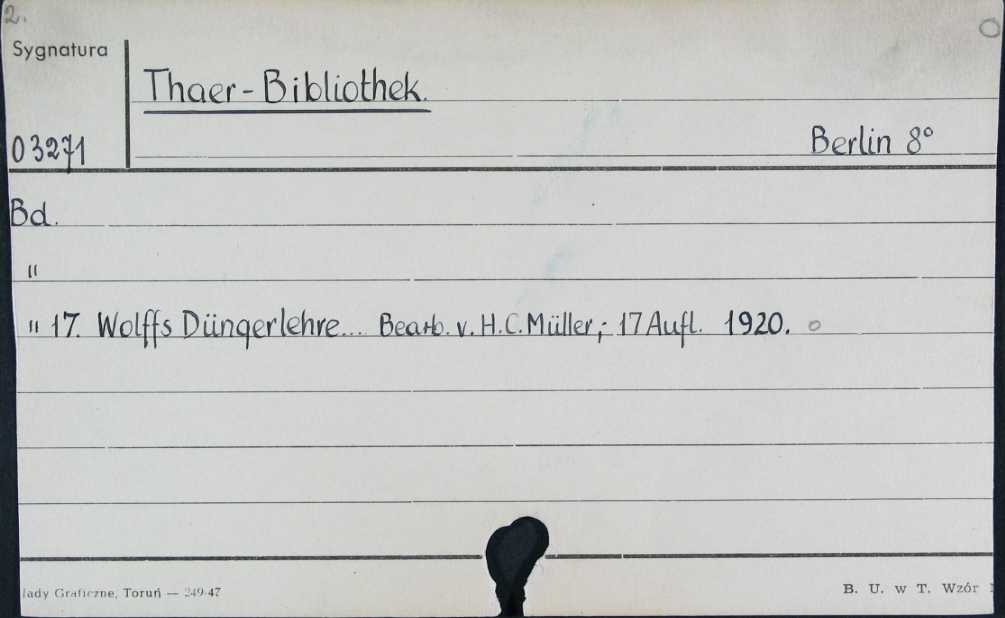 2.
Sygnatura
Thaer-Bibliothek.
03271
Berlin 8°
Bd.
"
" 17. Wolffs Düngerlehre... Bearb. v. H.C. Müller,- 17 Aufl. 1920.
lady Graficzne, Toruń — 249-47
B. U. w T. Wzór